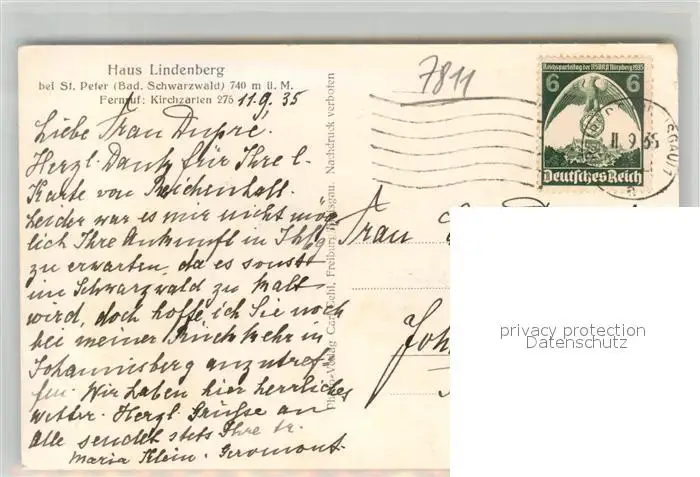 Haus Lindenberg
bei St. Peter (Bad. Schwarzwald) 740 m ü. M.
Fernruf: Kirchzarten 276
11.9.35
Liebe Frau Dupré!
Herzl. Dank für Ihre l.
Karte von Reichenhall.
Leider war es mir nicht mög
lich Ihre Ankunft in Jhbg
zu erwarten, da es sonst
im Schwarzwald zu kalt
wird, doch hoffe ich Sie noch
bei meiner Rückkehr in
Johannisberg anzutref-
fen. Wir haben hier herrliches
Wetter. Herzl. Grüsse an
Alle sendet stets Ihre tr.
Maria Klein-Geromont.
Nachdruck verboten
7811
Reichsparteitag der NSDAP Nürnberg 1935
6 6
Deutsches Reich
11 9 35
Frau
Joh
privacy protection
Datenschutz